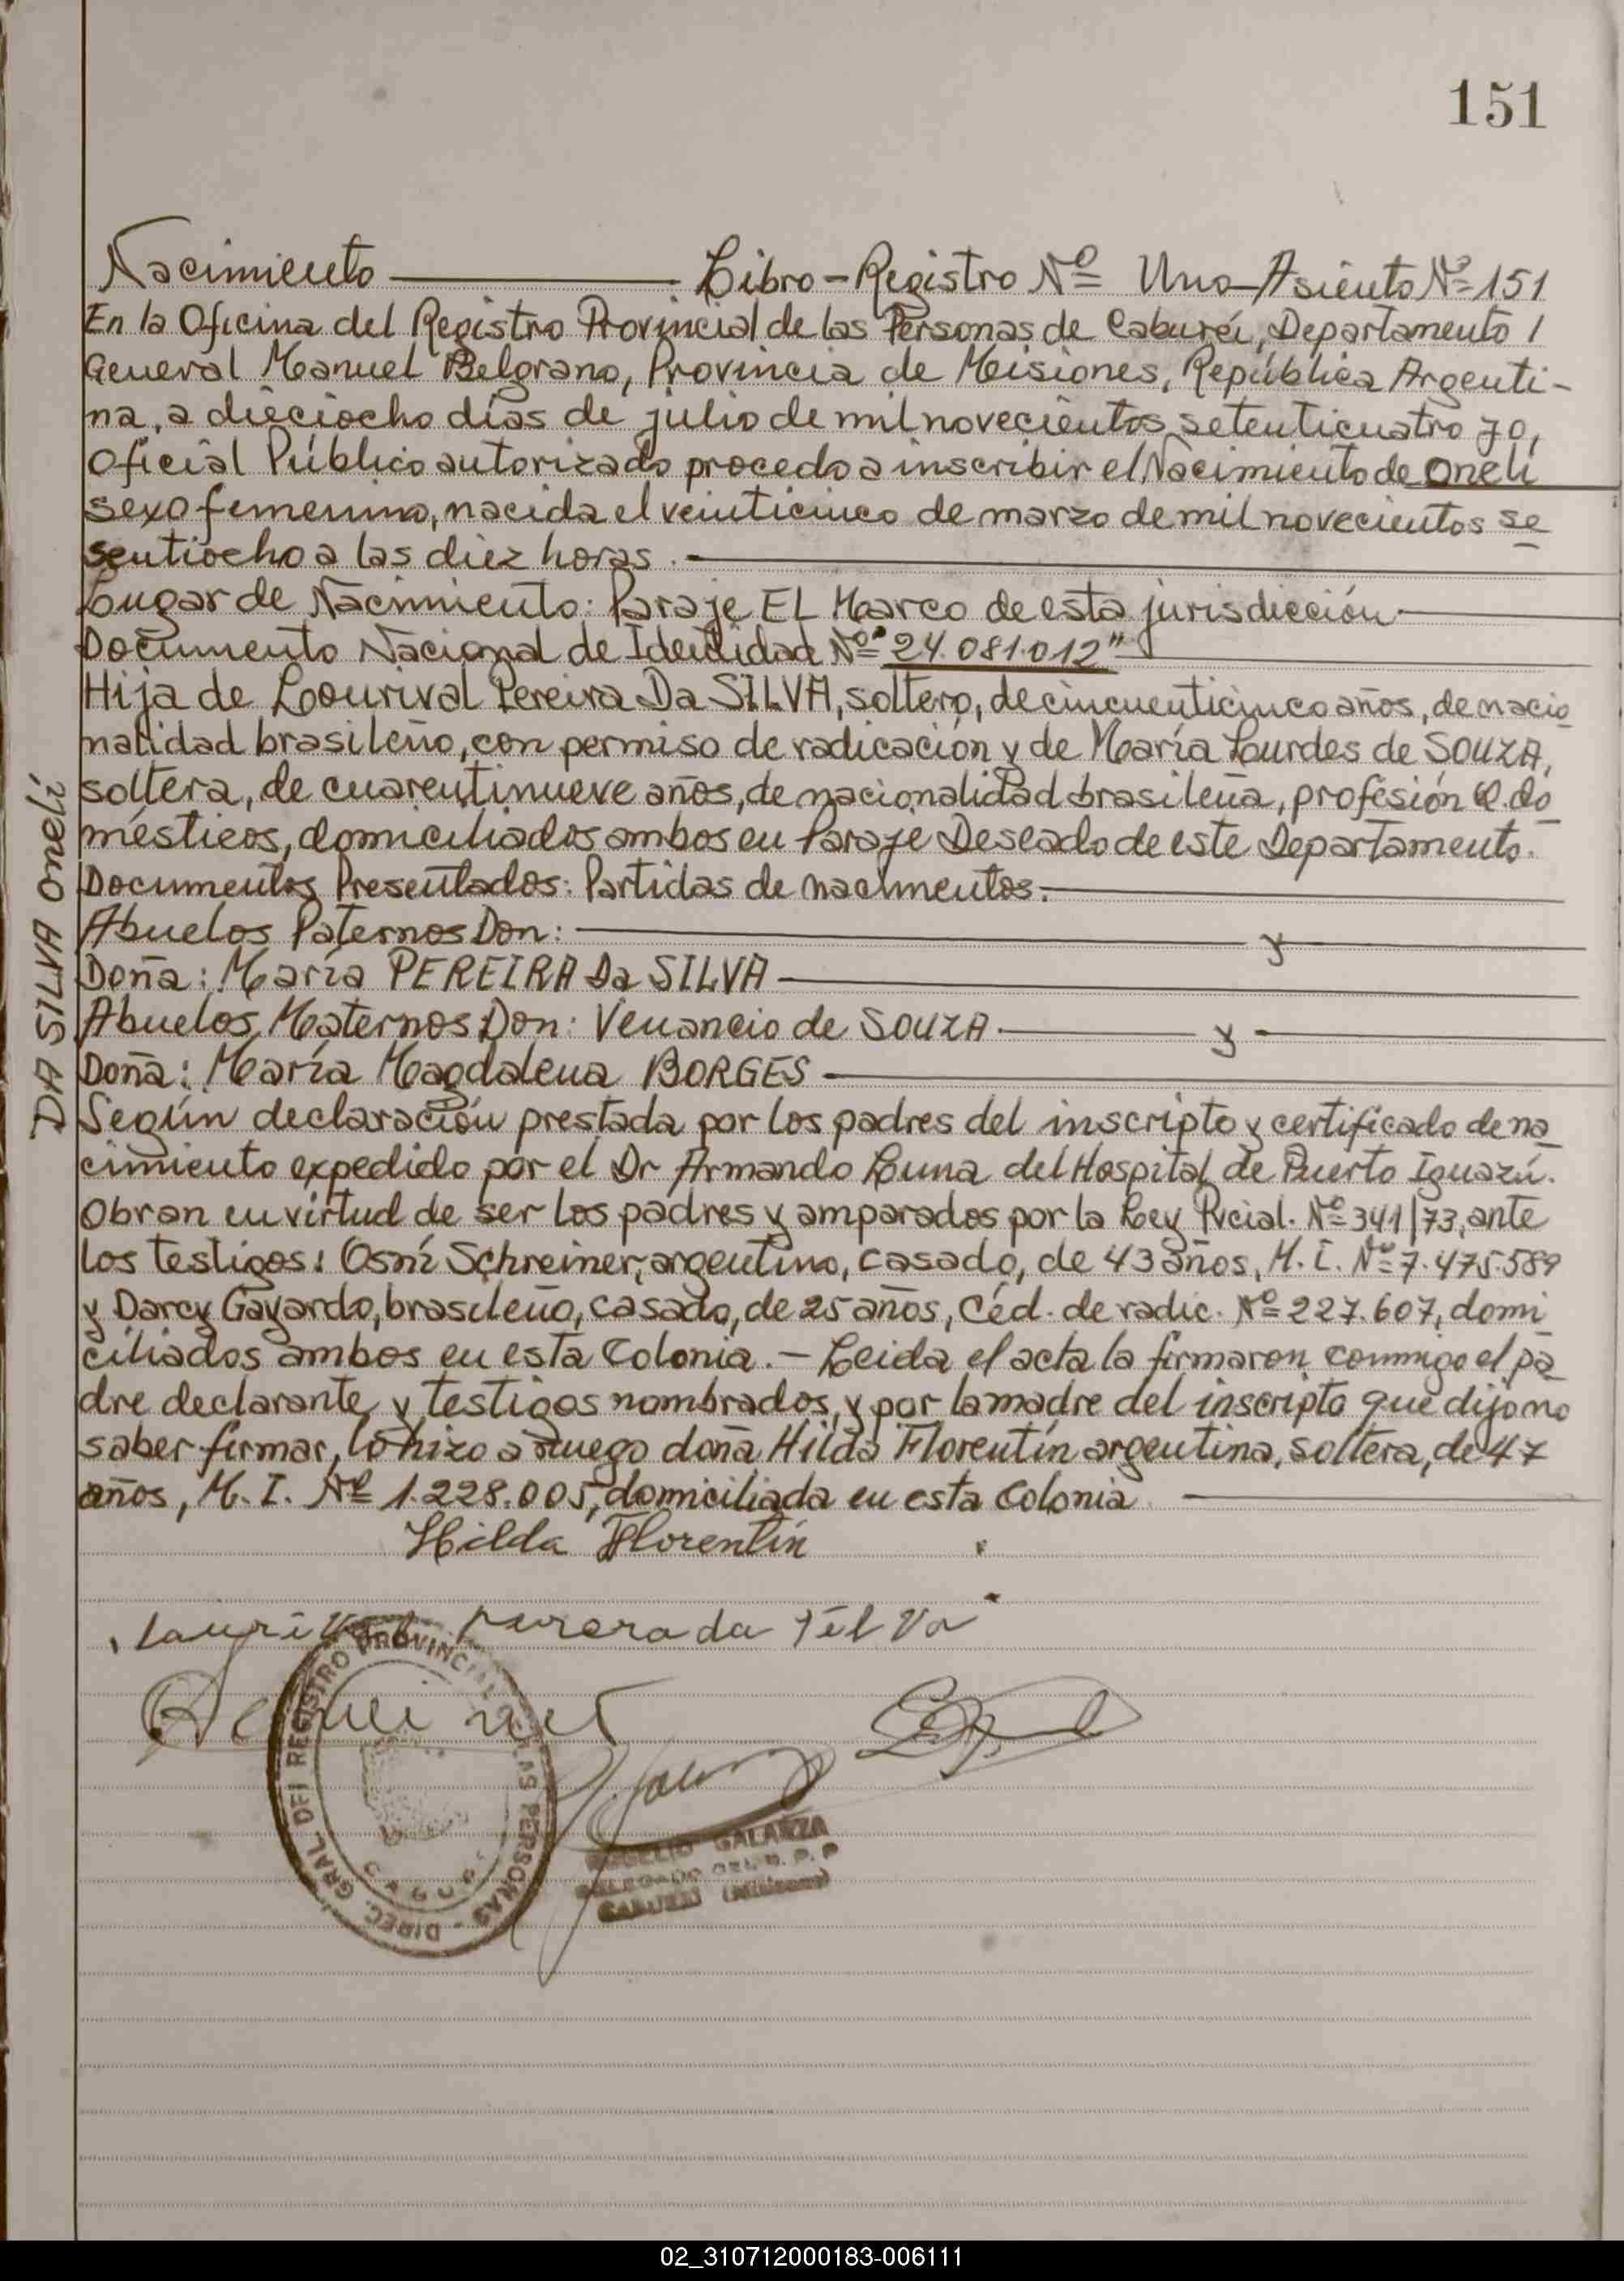 151
Nacimiento Libro-Registro Nº Uno Asiento Nº 151
En la Oficina del Registro Provincial de las Personas de Caburéi, Departamento /
General Manuel Belgrano, Provincia de Misiones, República Argenti-
na, a dieciocho días de julio de mil novecientos setenticuatro yo,
Oficial Público autorizado procedo a inscribir el Nacimiento de Onelí
sexo femenino, nacida el veinticinco de marzo de mil novecientos se
sentiocho a las diez horas.
Lugar de Nacimiento: Paraje EL Marco de esta jurisdicción
Documento Nacional de Identidad Nº "24.081.012"
Hija de Lourival Pereira Da SILVA, soltero, de cincuenticinco años, de nacio
nalidad brasileño, con permiso de radicación y de María Lurdes de SOUZA,
soltera, de cuarentinueve años, de nacionalidad brasileña, profesión Q. do
mésticos, domiciliados ambos en Paraje Deseado de este Departamento.
Documentos Presentados: Partidas de nacimentos.
Abuelos Paternos Don: y
Doña: María PEREIRA Da SILVA
Abuelos Maternos Don: Venancio de SOUZA y
Doña: María Magdalena BORGES
Según declaración prestada por los padres del inscripto y certificado de na
cimiento expedido por el Dr Armando Luna del Hospital de Puerto Iguazú.
Obran en virtud de ser los padres y amparados por la Ley Pvcial. Nº 341/73, ante
los testigos: Osní Schreiner, argentino, casado, de 43 años, M. I. Nº 7.475.589
y Darcy Gayardo, brasileño, casado, de 25 años, Céd. de radic. Nº 227.607, domi
ciliados ambos en esta Colonia. - Leida el acta la firmaron conmigo el pa
dre declarante y testigos nombrados, y por la madre del inscripto que dijo no
saber firmar, lo hizo a ruego doña Hilda Florentín argentina, soltera, de 47
años, M. I. Nº 1.228.005, domiciliada en esta Colonia
Hilda Florentín
da Silva
DIREC. GRAL. DEL REGISTRO PROVINCIAL DE LAS PERSONAS
ROGELIO GALARZA
DELEGADO DEL R. P. P
CABUREI (Misiones)
DA SILVA Onelí
02_310712000183-006111